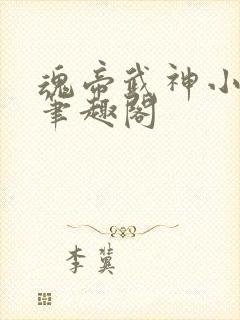 魂帝武神小
笔趣阁
李冀